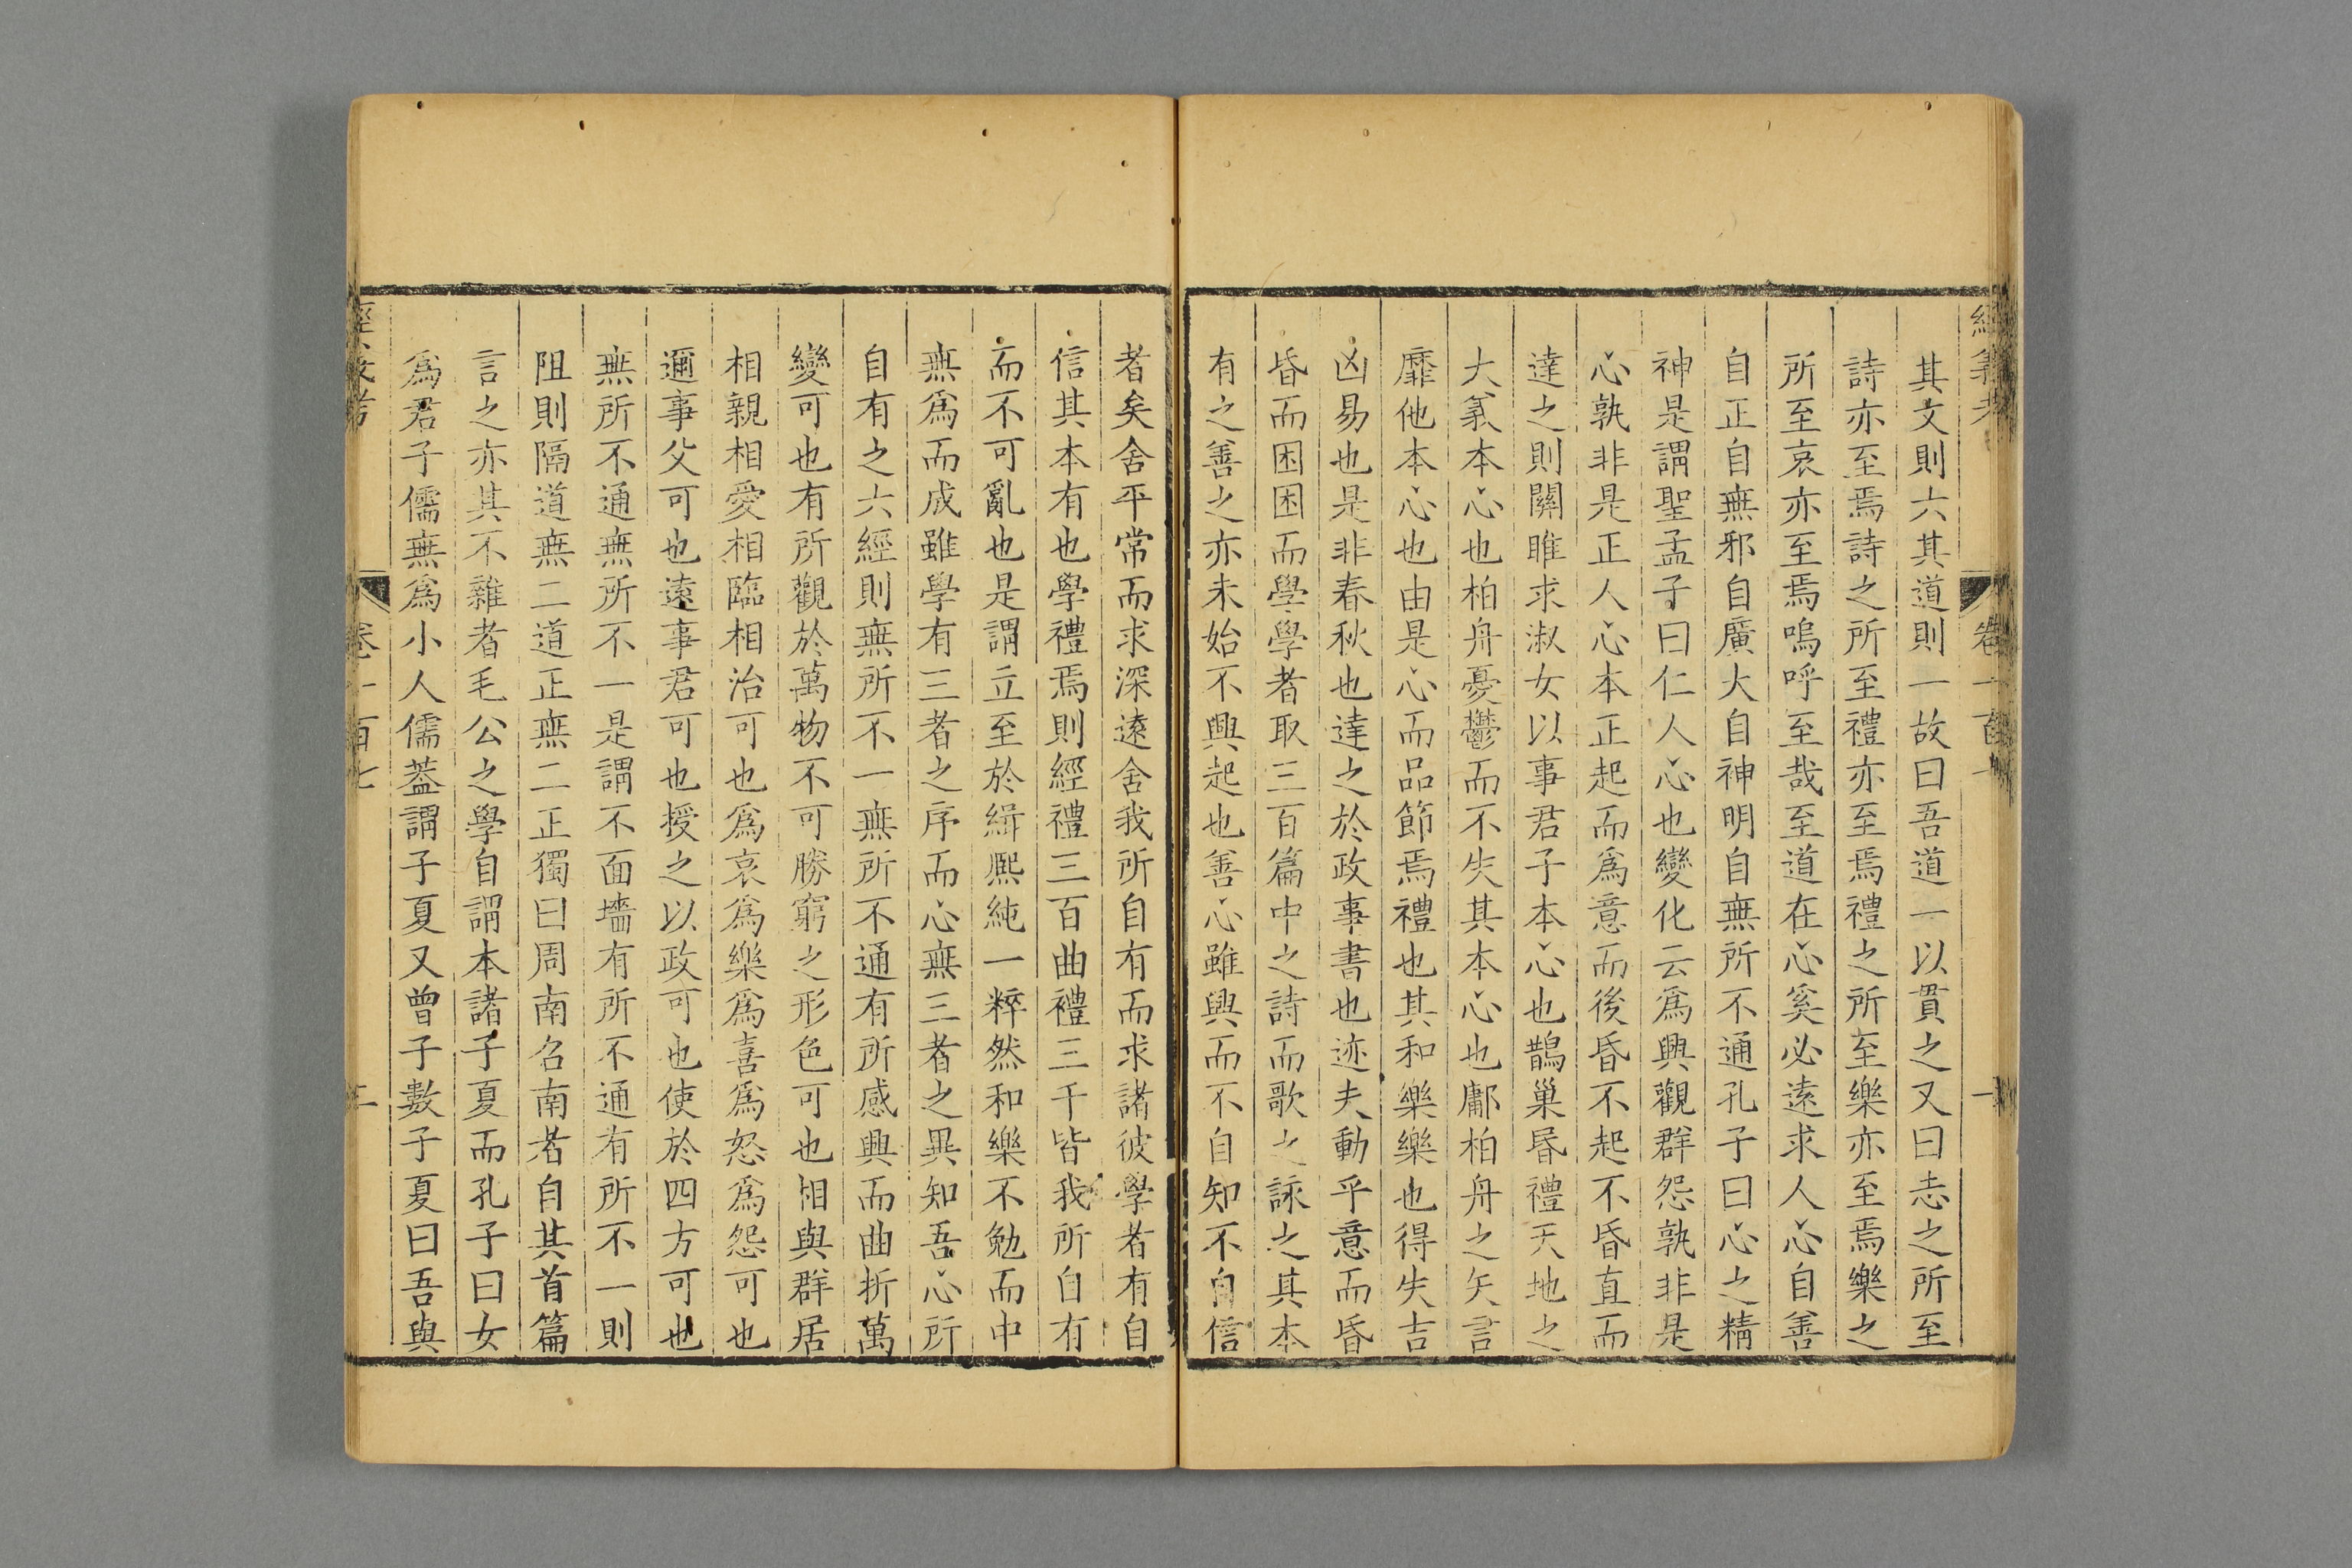 經義考
卷一百七
其文則六其道則一故曰吾道一以貫之又曰志之所至
詩亦至焉詩之所至禮亦至焉禮之所至樂亦至焉樂之
所至哀亦至焉嗚呼至哉至道在心奚必遠求人心自善
自正自無邪自廣大自神明自無所不通孔子曰心之精
神是謂聖孟子曰仁人心也變化云爲興觀群怨孰非是
心孰非是正人心本正起而爲意而後昏不起不昏直而
達之則關雎求淑女以事君子本心也鵲巢昏禮天地之
大義本心也柏舟憂鬱而不失其本心也鄘柏舟之矢言
靡他本心也由是心而品節焉禮也其和樂樂也得失吉
凶易也是非春秋也達之於政事書也迹夫動乎意而昏
昏而困困而學學者取三百篇中之詩而歌之詠之其本
有之善之亦未始不興起也善心雖興而不自知不自信
者矣舍平常而求深遠舍我所自有而求諸彼學者有自
信其本有也學禮焉則經禮三百曲禮三千皆我所自有
而不可亂也是謂立至於緝熙純一粹然和樂不勉而中
無爲而成雖學有三者之序而心無三者之異知吾心所
自有之六經則無所不一無所不通有所感興而曲折萬
變可也有所觀於萬物不可勝窮之形色可也相與群居
相親相愛相臨相治可也爲哀爲樂爲喜爲怒爲怨可也
邇事父可也遠事君可也授之以政可也使於四方可也
無所不通無所不一是謂不面墻有所不通有所不一則
阻則隔道無二道正無二正獨曰周南召南者自其首篇
言之亦其不雜者毛公之學自謂本諸子夏而孔子曰女
爲君子儒無爲小人儒蓋謂子夏又曾子數子夏曰吾與
經義考
卷一百七
二